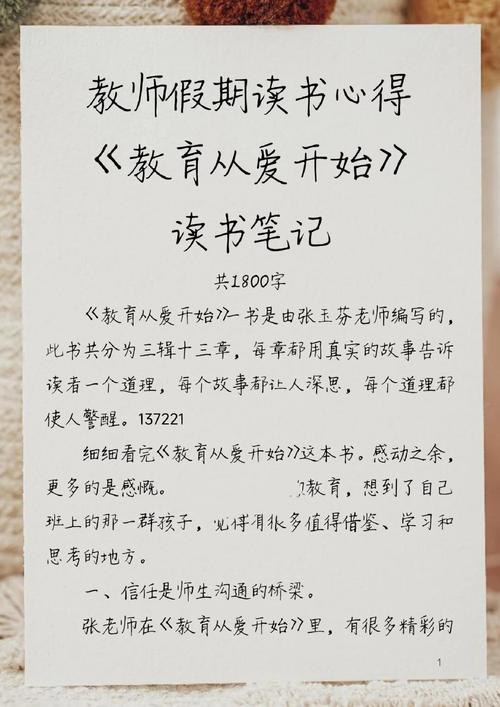 教师假期读书心得
《教育从爱开始》
读书笔记
共1800字
《教育从爱开始》一书是由张玉芬老师编写的，
此书共分为三辑十三章，每章都用真实的故事告诉
读者一个道理，每个故事都让人深思，每个道理都
使人警醒。137221
细细看完《教育从爱开始》这本书。感动之余，
更多的是感慨。教育，想到了自己
班上的那一群孩子，觉得有很多值得借鉴、学习和
思考的地方。
一、信任是师生沟通的桥梁。
张老师在《教育从爱开始》里，有很多精彩的
1